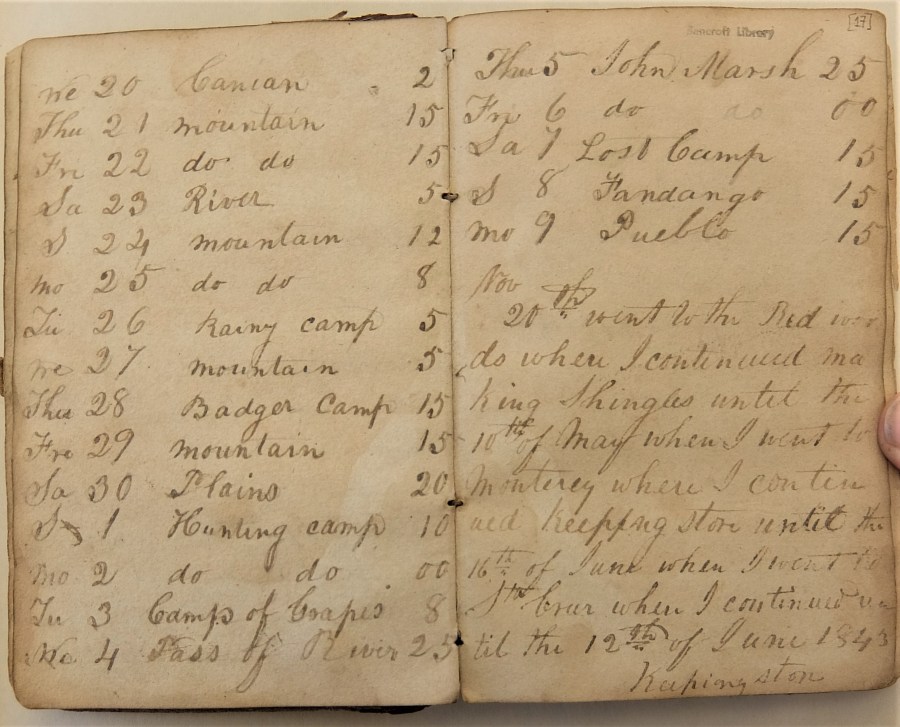 We 20 Canian 2
Thu 21 mountain 15
Fri 22 do do 15
Sa 23 River 5
S 24 mountain 12
mo 25 do do 8
Tu 26 Rainy camp 5
We 27 mountain 5
Thu 28 Badger Camp 15
Fri 29 mountain 15
Sa 30 Plains 20
S 1 Hunting camp 10
mo 2 do do 00
Tu 3 Camp of Grapes 8
We 4 Pass of River 25
[17]
Bancroft Library
Thu 5 John Marsh 25
Fri 6 do do 00
Sa 7 Lost Camp 15
S 8 Fandango 15
mo 9 Pueblo 15
Nov
20th went to the Red woo
do where I continued ma
king Shingles until the
10th of May when I went to
Monterey where I contin
ued keepping store until the
16th of June when I went to
Sta Crur when I continued un
til the 12th of June 1843
Keeping store